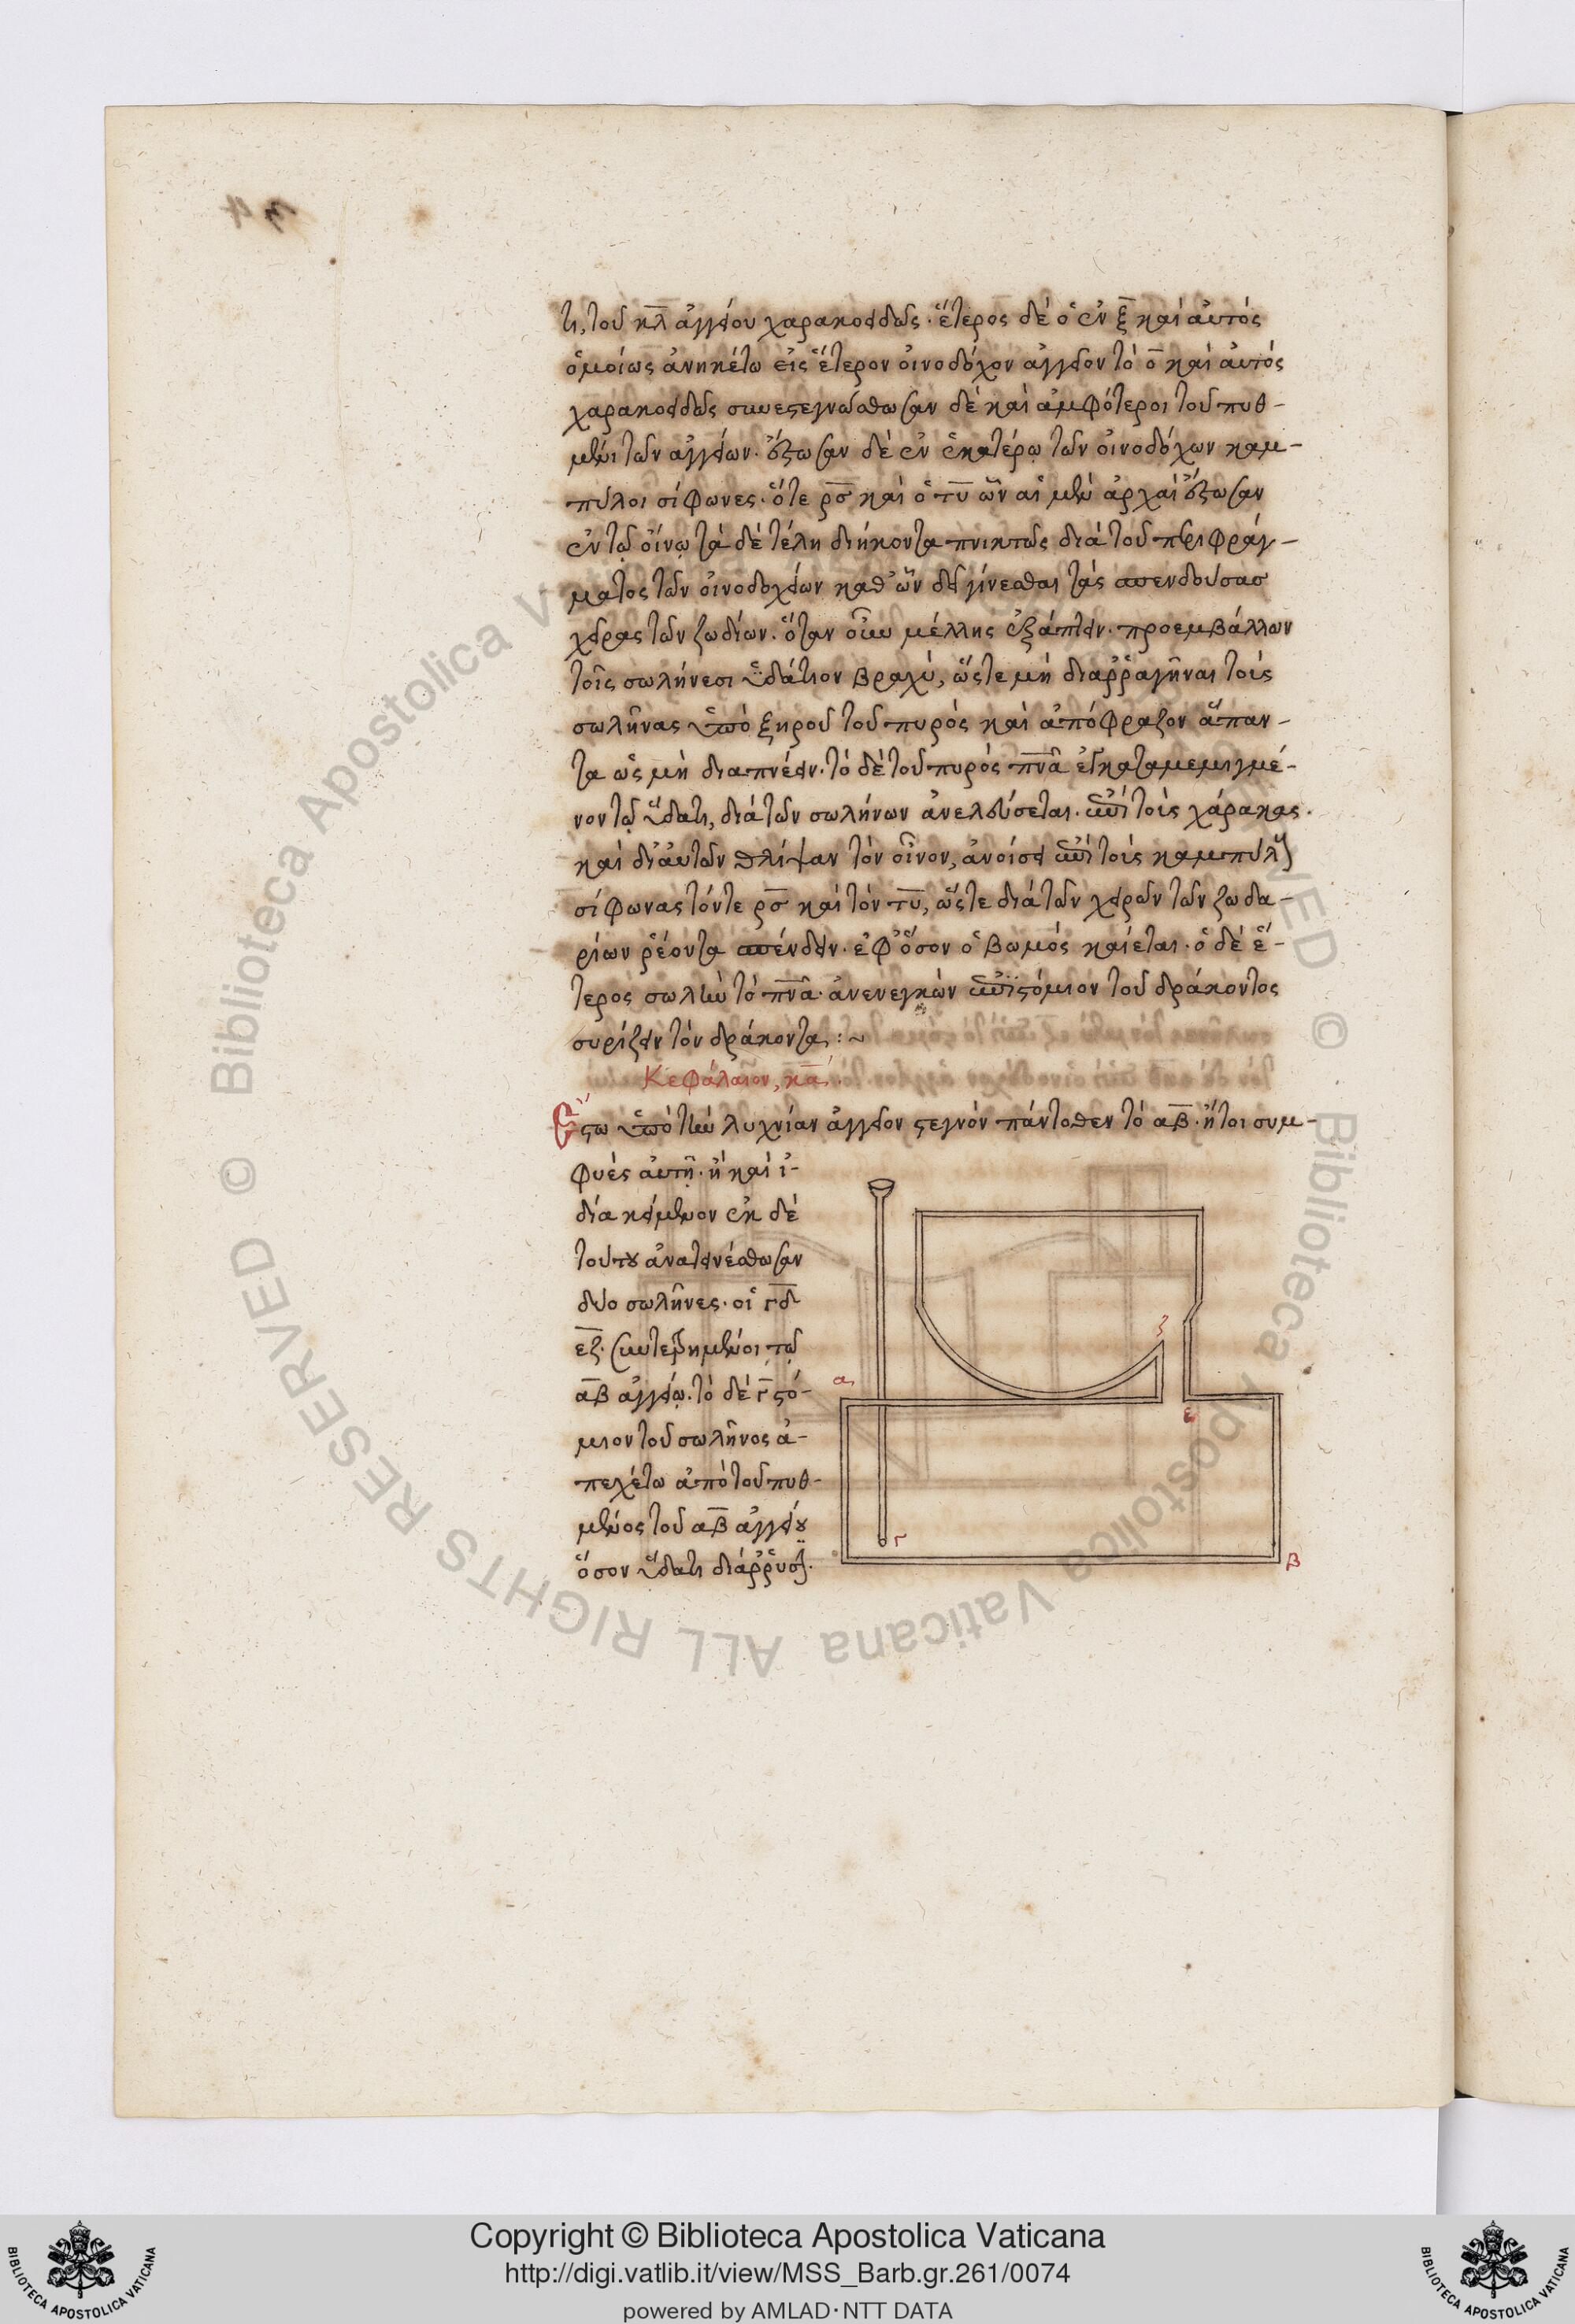 τι, τοῦ κλ ἀγγείου χαρακοειδῶς· ἕτερος δὲ ὁ ἐν ξ καὶ αὐτὸς
ὁμοίως ἀνηκέτω εἰς ἕτερον οἰνοδόχον ἀγγεῖον τὸ ο καὶ αὐτὸς
χαρακοειδῶς συνεστεγνώσθωσαν δὲ καὶ ἀμφότεροι τοῦ πυθ-
μένι τῶν ἀγγείων· ἔστωσαν δὲ ἐν ἑκατέρῳ τῶν οἰνοδόχων καμ-
πύλοι σίφωνες· ὅτε ρσ καὶ ὁ τυ ὧν αἱ μὲν ἀρχαὶ ἔστωσαν
ἐν τῷ οἴνῳ τὰ δὲ τέλη διήκοντα πνικτῶς διὰ τοῦ περιφράγ-
ματος τῶν οἰνοδοχείων καθ' ὧν δεῖ γίνεσθαι τὰς σπενδούσας
χεῖρας τῶν ζωδίων· ὅταν οὖν μέλλῃς ἐξάπτειν· προεμβάλλων
τοῖς σωλήνεσι ὑδάτιον βραχὺ, ὥστε μὴ διαῤῥαγῆναι τοὺς
σωλῆνας ὑπὸ ξηροῦ τοῦ πυρὸς καὶ ἀπόφραξον ἅπαν-
τα ὡς μὴ διαπνέειν· τὸ δὲ τοῦ πυρὸς πνᾶ ἐγκαταμεμιγμέ-
νον τῷ ὕδατι, διὰ τῶν σωλήνων ἀνελεύσεται· ἐπὶ τοὺς χάρακας·
καὶ δι' αὐτῶν θλίψαν τὸν οἶνον, ἀνοίσει ἐπὶ τοὺς καμπύλους
σίφωνας τόν τε ρσ καὶ τὸν τυ, ὥστε διὰ τῶν χειρῶν τῶν ζωδα-
ρίων ῥέοντα σπένδειν· ἐφ' ὅσον ὁ βωμὸς καίεται· ὁ δὲ ἕ-
τερος σωλὴν τὸ πνᾶ· ἀνενεγκὼν ἐπὶ στόμιον τοῦ δράκοντος
συρίζειν τὸν δράκοντα :~
Κεφάλαιον, κα΄.
Ἔστω ὑπὸ τὴν λυχνίαν ἀγγεῖον στεγνὸν πάντοθεν τὸ αβ· ἤτοι συμ-
φυὲς αὐτῇ· ἢ καὶ ἰ-
δία κείμενον ἐκ δὲ
τούτου ἀνατεινέσθωσαν
δύο σωλῆνες· οἱ γδ
εζ· συντετρημένοι τῷ
αβ ἀγγείῳ· τὸ δὲ γ στό-
μιον τοῦ σωλῆνος ἀ-
πεχέτω ἀπὸ τοῦ πυθ-
μένος τοῦ αβ ἀγγείου
ὅσον ὕδατι διάῤῥυσιν·
ζ
α
ε
γ
β
Copyright © Biblioteca Apostolica Vaticana
http://digi.vatlib.it/view/MSS_Barb.gr.261/0074
powered by AMLAD·NTT DATA
BIBLIOTECA APOSTOLICA VATICANA
BIBLIOTECA APOSTOLICA VATICANA
© Biblioteca Apostolica Vaticana ALL RIGHTS RESERVED